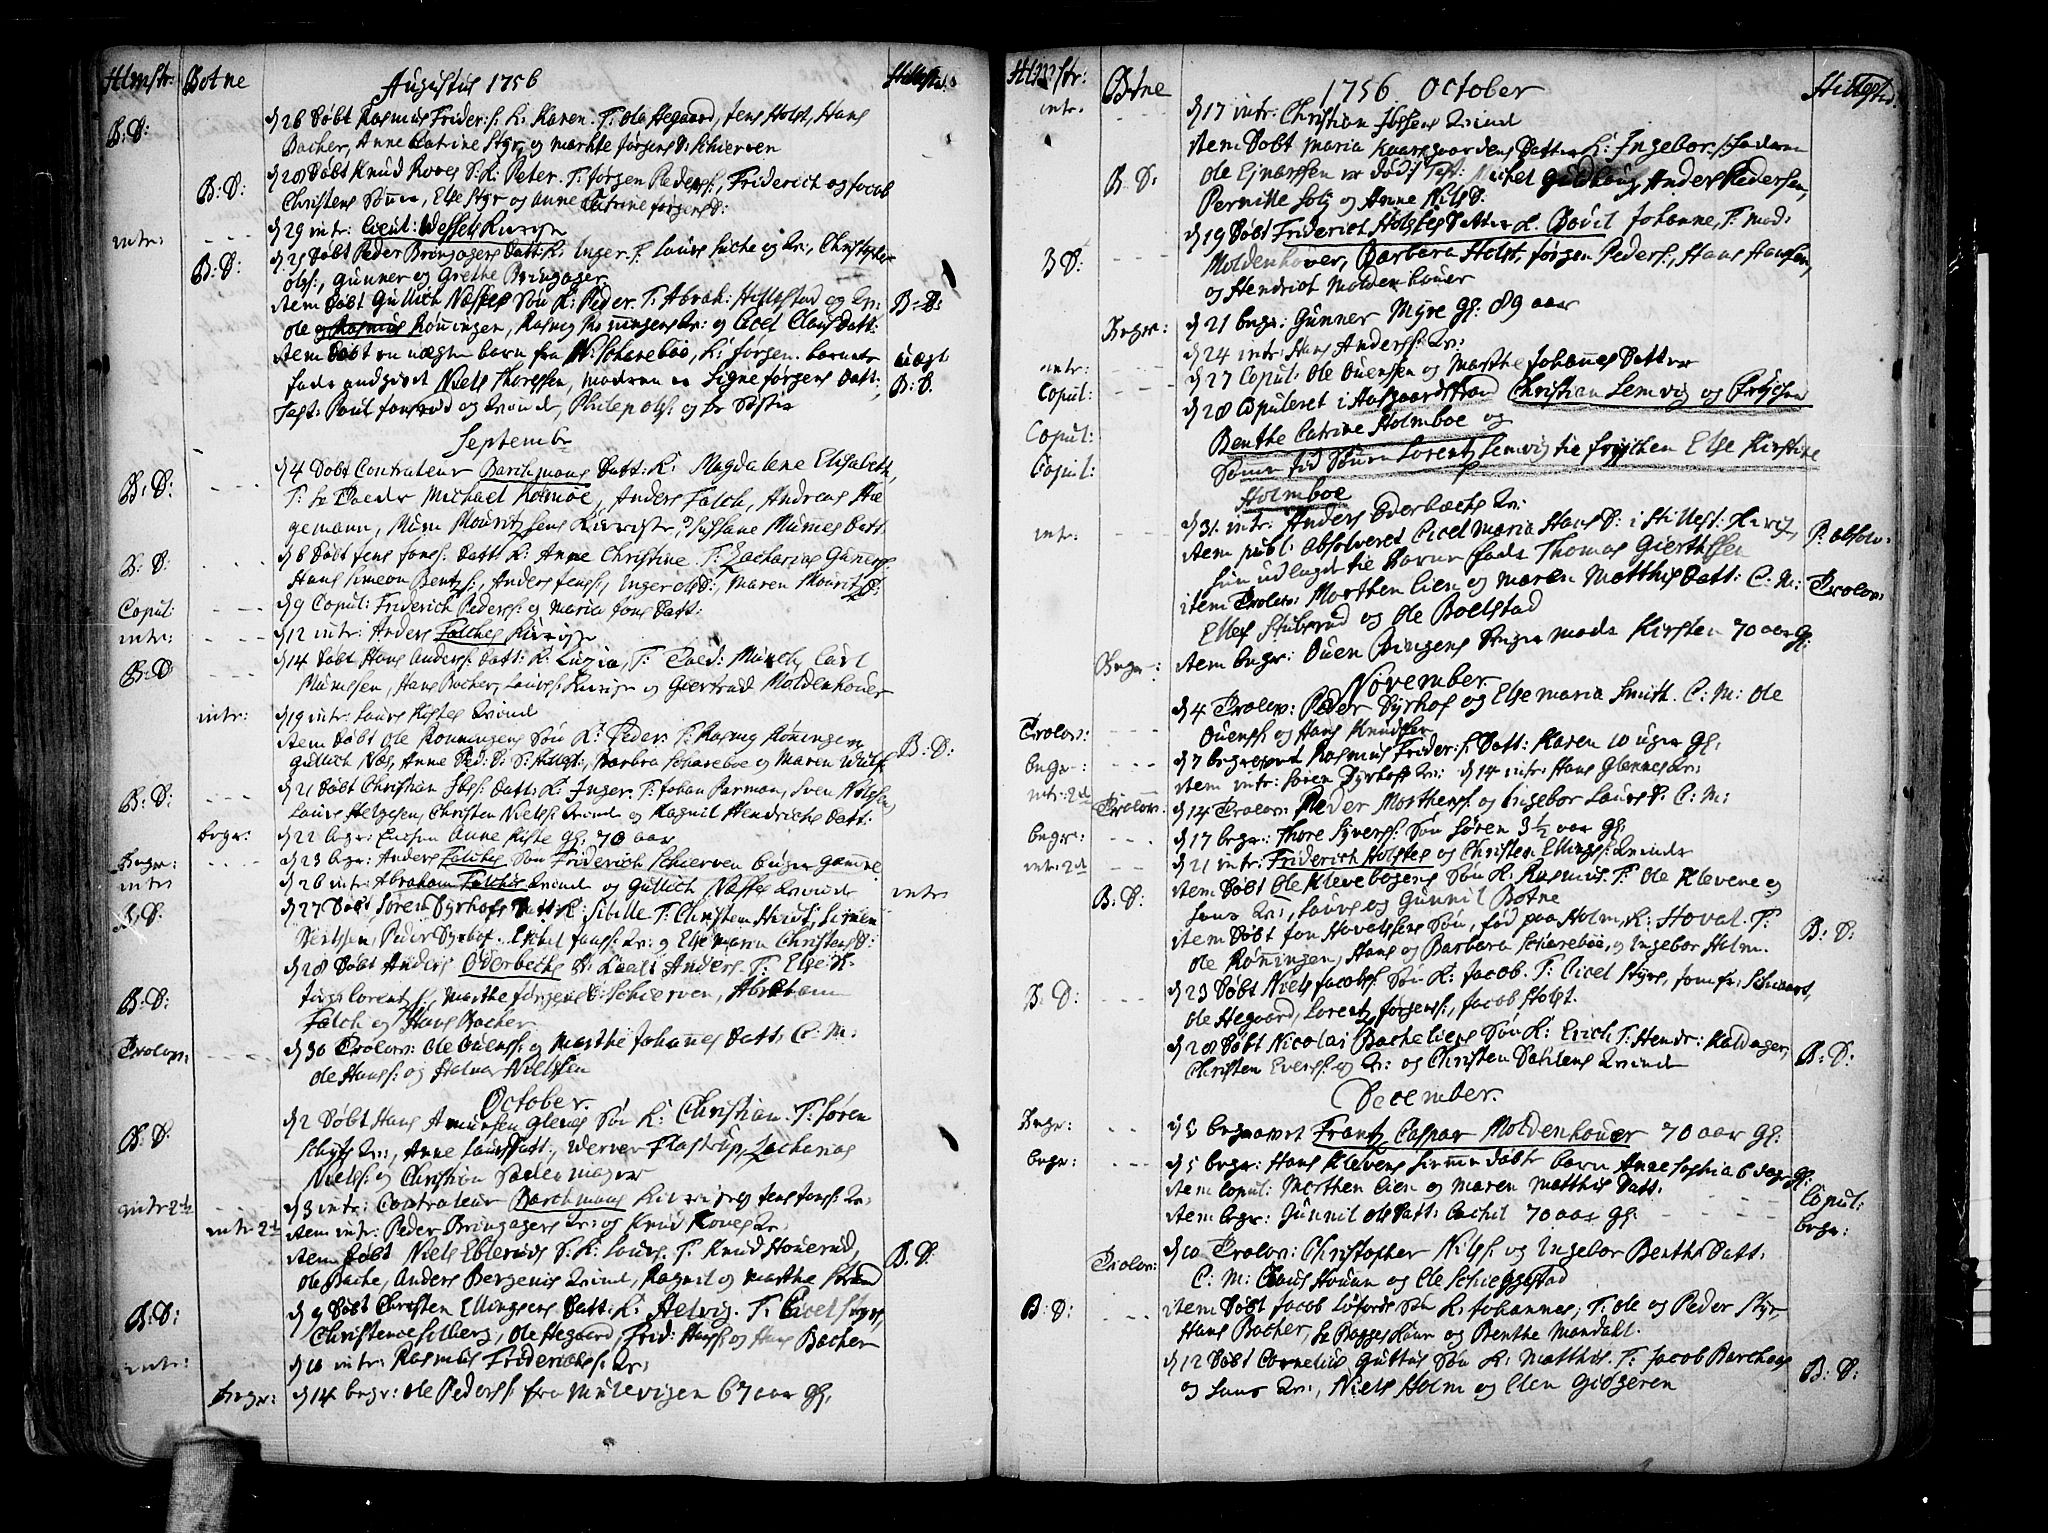 Hlmstr: Botne Augustus 1756 Hillested
B: D: d 26 Døbt Rasmus Frider: s: K. Karen. T: Ola Hegaard, Jens Holst, Hans
Bacher, Anne Catrine Styr, og Marthe Jørgens D: Schierven
B: D: d 28 Døbt Knud Roves S: K: Peter. T: Jørgen Peders:, Friderich og Jacob
Christens Sønner, Else Styr og Anne Catrine Jørgens D:
intr: d 29 intr: Lieut: Wessels
B: D: d 29 Døbt Peder Bringagers Datt: K: Inger. T: Laurs og Qv:, Christopher
Ols:, Gunner og Grethe Bringager
B: D: Item Døbt Gullich Næsses Søn K: Peder. T: Abrah: Hillestad og Qv:
Ole Rønningen, Rasmus Rønningens Qv: og Cicel Claus Datt:
uægt. Item Døbt en uægte barn fra N: Scharebøe, K: Jørgen. barnets
B: D: Fader andgivet Niels Thoressen, moderen er Signe Jørgens Datt:
Test: Poul Jonsrud og Qvind, Philip Ols: og hr Søster
September
B: D: d 4 Døbt Controleur Barchmans Datt: K: Magdalene Elisabeth,
T: Michael Holmboe, Anders Falch, Andreas Ha
gemann, Mum Mouritzsens og Sussane Mumes Datt:
B: D: d 6 Døbt Jens Jons: Datt: K: Anne Christine. T: Zacharias Guners:
Hans Simeon Bentz:, Anders Jens:, Inger Ols D:, Maren Mouritz D:
Copul: d 9 Copul: Friderich Peders: og Maria Jons Datt:
intr: d 12 intr: Anders Falches
B: D: d 14 Døbt Hans Anders: Datt: K: Luzia, T: Münch, Carl
Mumsen, Hans Bacher, Laurs: og Giertrud Moldenhouer
intr: d 19 intr: Laurs Kistes Qvind
B: D: Item Døbt Ole Rønningens Søn K: Peder. T: Rasmus Rønningen
Gullich Næs, Anne Ped: D: S: Hillest:, Barbra Scharebøe og Maren Wulf
B: D: d 21 Døbt Christian Ibs: Datt: K: Inger. T: Johan Parman, Sven Nilssen,
Laurs Helgesen, Christen Niels: Qvind og Ragnil Hendrichs Datt:
begr: d 22 begr: Anne Kiste gl: 70 aar
Begr: d 23 begr: Anders Falches Søn Friderich Schierven 6 uger gamle
intr d 26 intr: Abraham Falchs Qvind og Gullich Næsses Qvinde intr
B: D: d 27 Døbt Søren Dyrhofs Datt: K: Sibille T: Christen Hvidt, Simen
Bertssen, Peder Dyrhof, Eschel Jans: Qv: og Else Maria Christens D:
B: D: d 28 Døbt Anders Oderbechs S: K: Anders. T: Else K:
Lorentz:, Marthe Jørgens D: Schierven, Abraham
Falch og Hans Bacher
Trolov: d 30 Trolov: Ole Ouens: og Marthe Johannes Datt: C: M:
Ole Hans: og Halvor Nielssen
October.
B: D: d 2 Døbt Hans Amunsen Glenes Søn K: Christian. T: Søren
Schifs Qv:, Anne Laurs Datt:, Werner Flastrup, Zacharias
Niels: og Christian Sadelmager
intr 2de d 3 intr: Controleur Barchmans og Jens Jons: Qv:
intr 2de Item intr: Peder Bringagers Qv: og Knud Roves Qv:
B: D: Item Døbt Niels Eblerøds S: K: Laurs. T: Knud Houerud,
Ole Bache, Anders Bergenes Qvind, Ragnil og Marthe Sørand
B: D: d 9 Døbt Christen Ellingsens Datt: K: Helvig. T: Cicel Styr,
Christence Solberg, Ole Hegaard, Frid: Hans: og Hans Bacher
intr: d 10 intr: Rasmus Friderichs: Qv:
begr: d 14 begr: Ole Peders: fra Mulevigen 67 aar gl:
Hlmstr: Botne 1756 October Hillested
intr: d 17 intr: Christian Ibsens Qvind
B: D: Item Døbt Maria Kaarsgaardens Datter K: Ingebor: /: Faderen
Ole Ejnerssen er død :/ Test: Michel Guldhoug Anders Pedersen,
Pernille Solig og Anne Nils D:
B: D: d 19 Døbt Friderich Holstes Datter K. Bodil Johanne, T. mad:
Moldenhover, Barbara Holst, Jørgen Peders:, Hans Hansen,
og Hendrich Moldenhouer
Begr: d 21 begr: Gunner Myre gl: 89 aar
intr: d 24 intr: Hans Anders: Qv:
Copul: d 27 Copul: Ole Ouensen og Marthe Johannes Datter
Copul: d 28 Copuleret i Aasgaardstrand Christian Lemvig og Frøchen
Benthe Catrine Holmboe og
Copul: Samme tid Søren Lorentz Lemvig tie Frøichen Else Kirstine
Holmboe
intr: d 31. intr: Anders Oderbechs Qv:
P: absolv: Item publ: absolveret Cicel Maria Hans D: i Hillest: Kirche
hun udlagde tie Barne fader Thomas Giertssen
Trolov: item Trolov: Morthen Lien og Maren Matthis Datt: C. M:
Ellef Stubsrud og Ole Boelstad
Begr: Item begr: Ouen Bringens Svigermoder Kirsten 70 aar gl:
November.
Trolov: d 4 Trolov: Peder Dyrhof og Else Maria Smith. C: M: Ole
Ouens: og Hans Knudssen
begr: d 7 begravet Rasmus Frider: s: Datt: Karen 10 uger gl:
intr: 2de Item intr: Søren Dyrhofs Qv: d 14 intr: Hans Glennes Qv:
Trolov: d 14 Trolov: Peder Mortens: og Ingebor Laurs D. C: M:
begr: d 17 begr: Thore Sivers: Søn Søren 3½ aar gl:
intr: 2de d 21 intr: Friderich Holstes og Christen Ellings: Qvinder
B: D: Item Døbt Ole Klevebogens Søn K. Rasmus. T: Ole Klevene og
hans Qv:, Laurs og Gunnil Botne
B: D: Item Døbt Jon Hovelsens Søn, fød paa Holm, K: Hoval. T:
Ole Rønningen, Hans og Barbara Scharebøe, og Ingebor Holm.
B: D: d 23 Døbt Niels Jacobs: Søn K: Jacob. T: Cicel Styrs, Jomfr: Schwart,
Ole Hegaard, Lorentz Jørgens:, Jacob Holst.
B: D: d 28 Døbt Nicolai Bacheliens Søn K: Erich T: Hendr: Kaldager,
Christen Evens: og Qv: og Christen Dahlens Qvind
December.
Begr: d 5 begravet Frantz Caspar Moldenhouer 70 aar gl:
begr: d 5 begr: Hans Klevens hiemme døbte barn Anne Sophia 6 dage gl:
Copul: Item Copul: Morthen Lien og Maren Matthis Datt:
begr: Item begr: Gunnil Ols Datt: Bachel 70 aar gl:
Trolov: d 10 Trolov: Christopher Nils: og Ingebor Benths Datt:
C: M: Claus Houen og Ole Schieggestad
B: D: item Døbt Jacob Løfords Søn K: Johannes, T: Ole og Peder Styr,
Hans Bacher, og Benthe Mandahl.
B: D: d 12 Døbt Cornelius Guttus Søn K: Matthis. T: Jacob Barchaas
og hans Qv:, Niels Holm og Elen Gidgeren